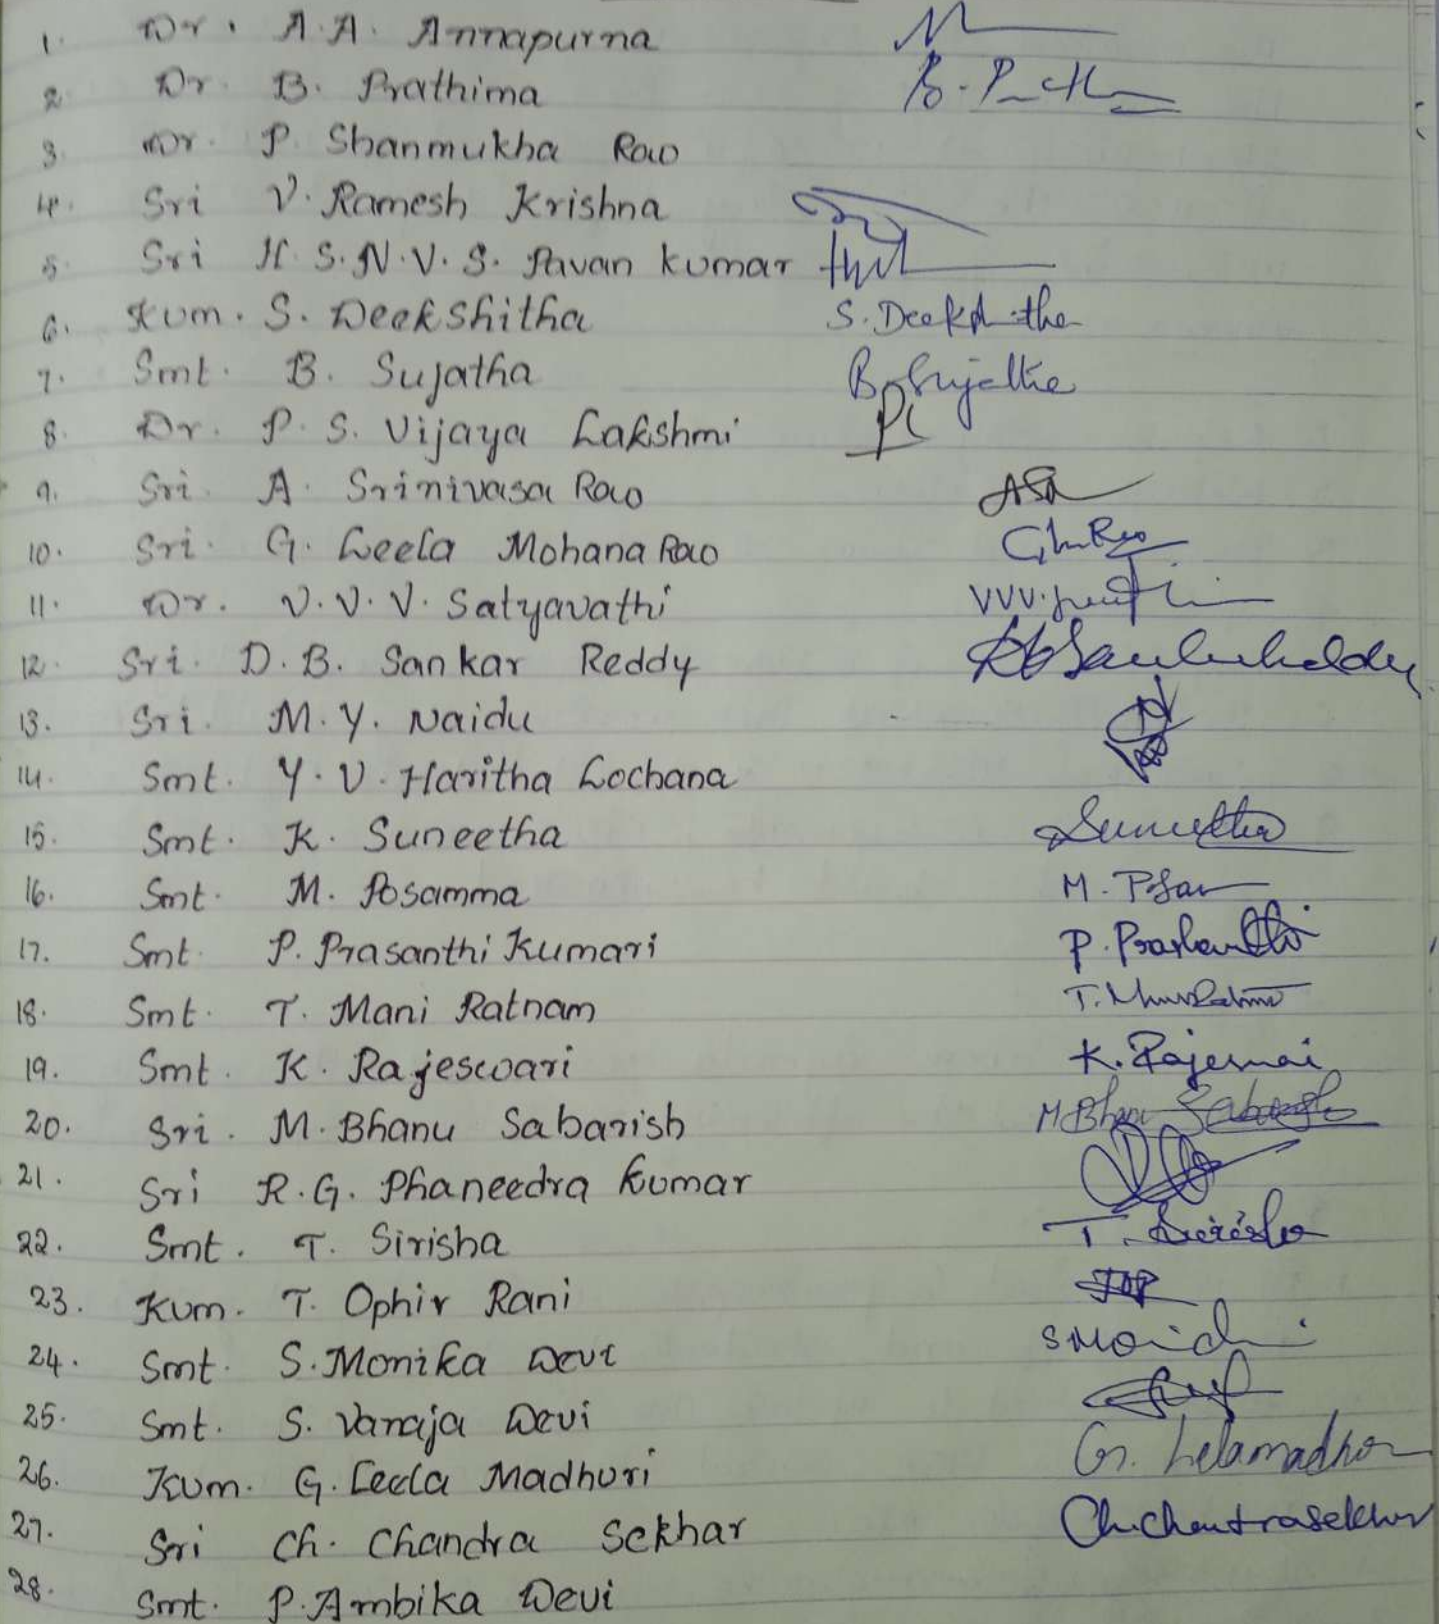 1. Dr. A.A. Annapurna
2. Dr. B. Prathima
3. Dr. P. Shanmukha Rao
4. Sri V. Ramesh Krishna
5. Sri H.S.N.V.S. Pavan kumar
6. Kum. S. Deekshitha S. Deekshitha
7. Smt. B. Sujatha B. Sujatha
8. Dr. P.S. Vijaya Lakshmi
9. Sri A. Srinivasa Rao
10. Sri. G. Leela Mohana Rao
11. Dr. V.V.V. Satyavathi
12. Sri. D.B. Sankar Reddy
13. Sri. M.Y. Naidu
14. Smt. Y.V. Haritha Lochana
15. Smt. K. Suneetha Suneetha
16. Smt. M. Posamma
17. Smt. P. Prasanthi Kumari
18. Smt. T. Mani Ratnam
19. Smt. K. Rajeswari
20. Sri. M. Bhanu Sabarish
21. Sri R.G. Phaneedra Kumar
22. Smt. T. Sirisha T. Sirisha
23. Kum. T. Ophir Rani
24. Smt. S. Monika Devi
25. Smt. S. Vanaja Devi
26. Kum. G. Leela Madhuri
27. Sri Ch. Chandra Sekhar
28. Smt. P. Ambika Devi